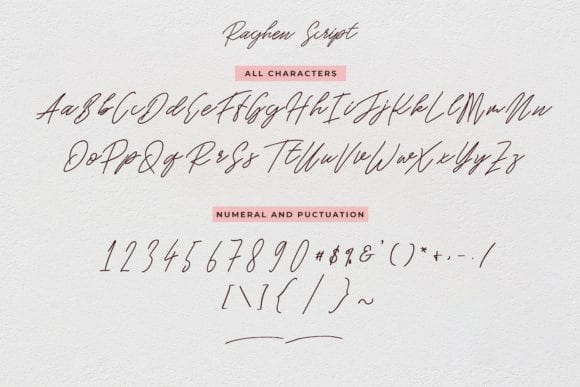 Rayhen Script
ALL CHARACTERS
AaBbCcDdEeFfGgHhIiJjKkLlMmNn
OoPpQqRrSsTtUuVvWwXxYyZz
NUMERAL AND PUCTUATION
1234567890#$%&'()*+,-./
[\]{|}~